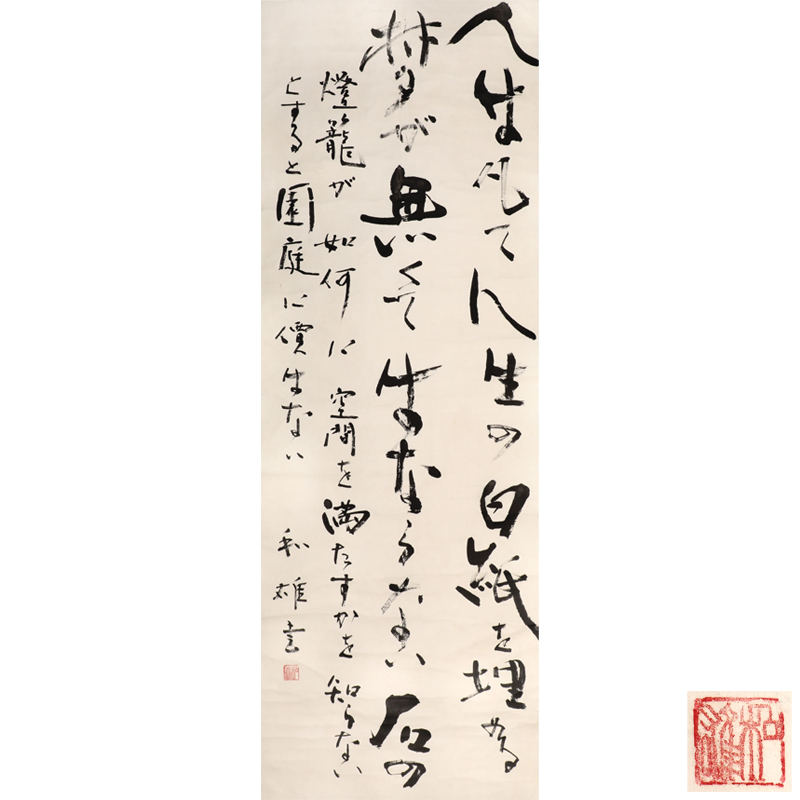 人は凡て人生の白紙を埋める
夢が無くてはならない石の
燈籠が如何に空間を満たすかを知らない
とすると園庭に價はない
和雄書